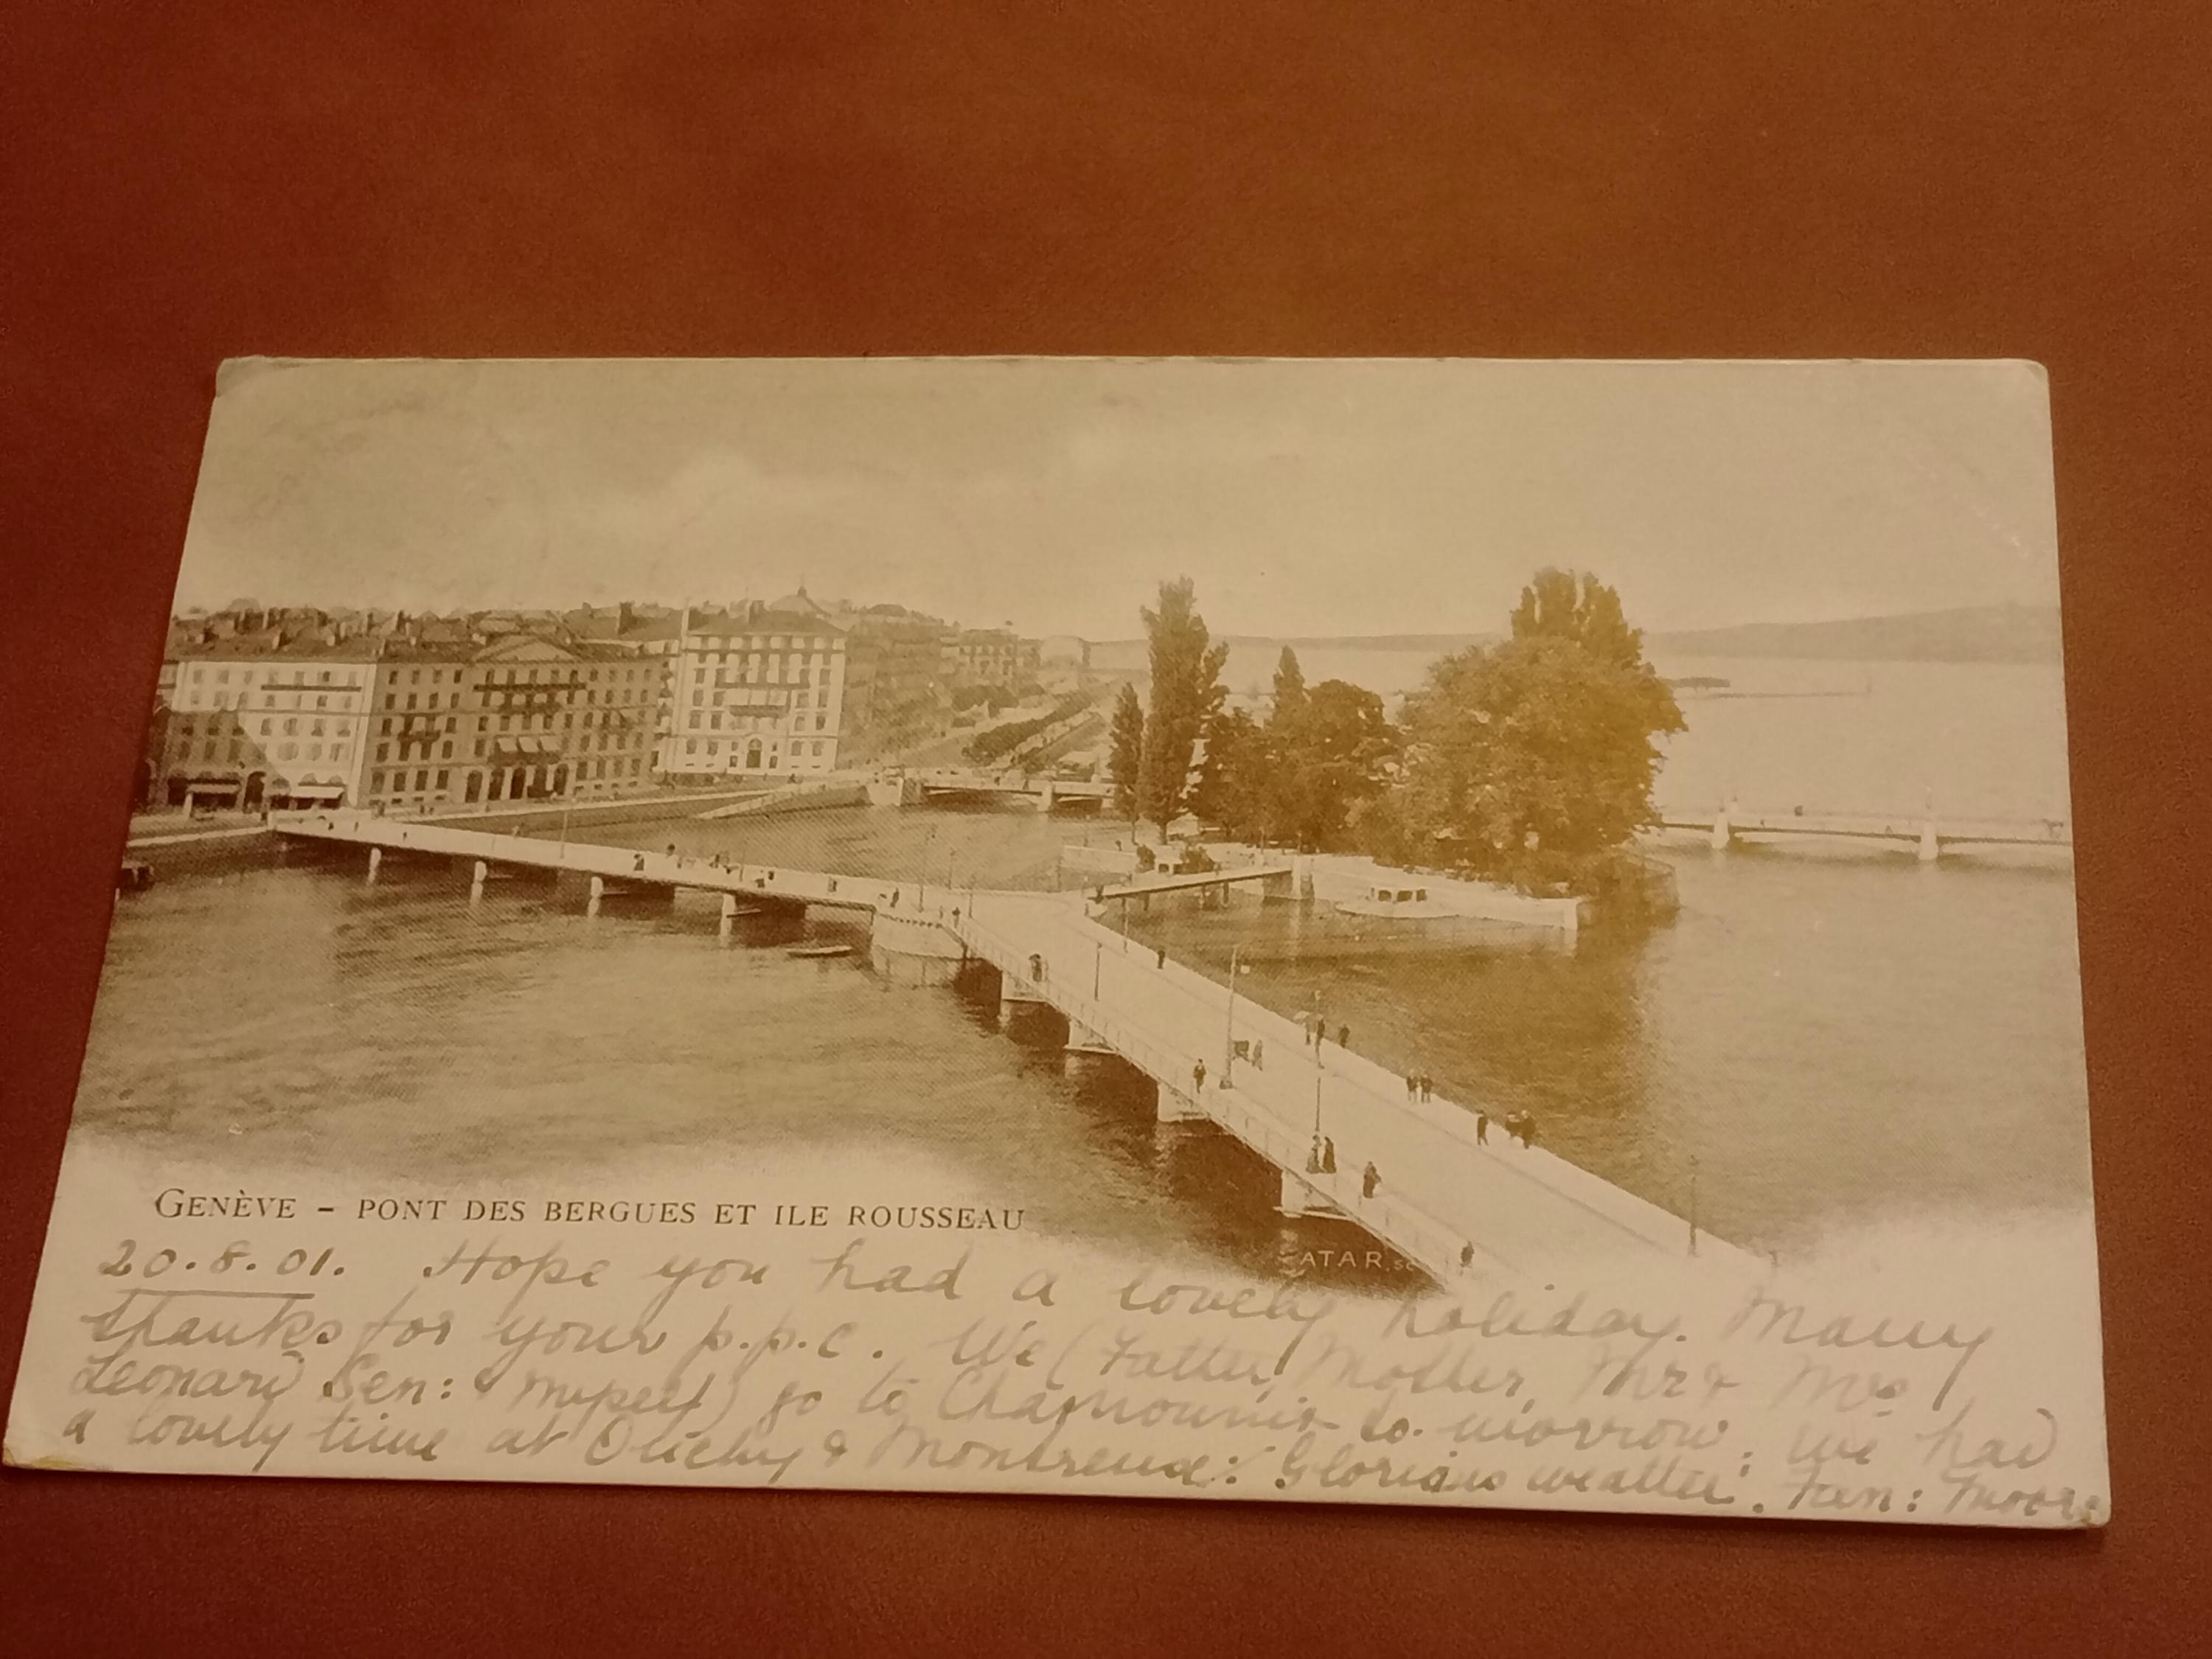 GENÈVE – PONT DES BERGUES ET ILE ROUSSEAU
ATAR. SC
20.8.01. Hope you had a lovely holiday. Many
thanks for your p.p.c. We (Father, Mother, Mr & Mrs
Leonard Sen: & myself) go to Chamounix to-morrow; we had
a lovely time at Ouchy & Montreux: Glorious weather. Moore